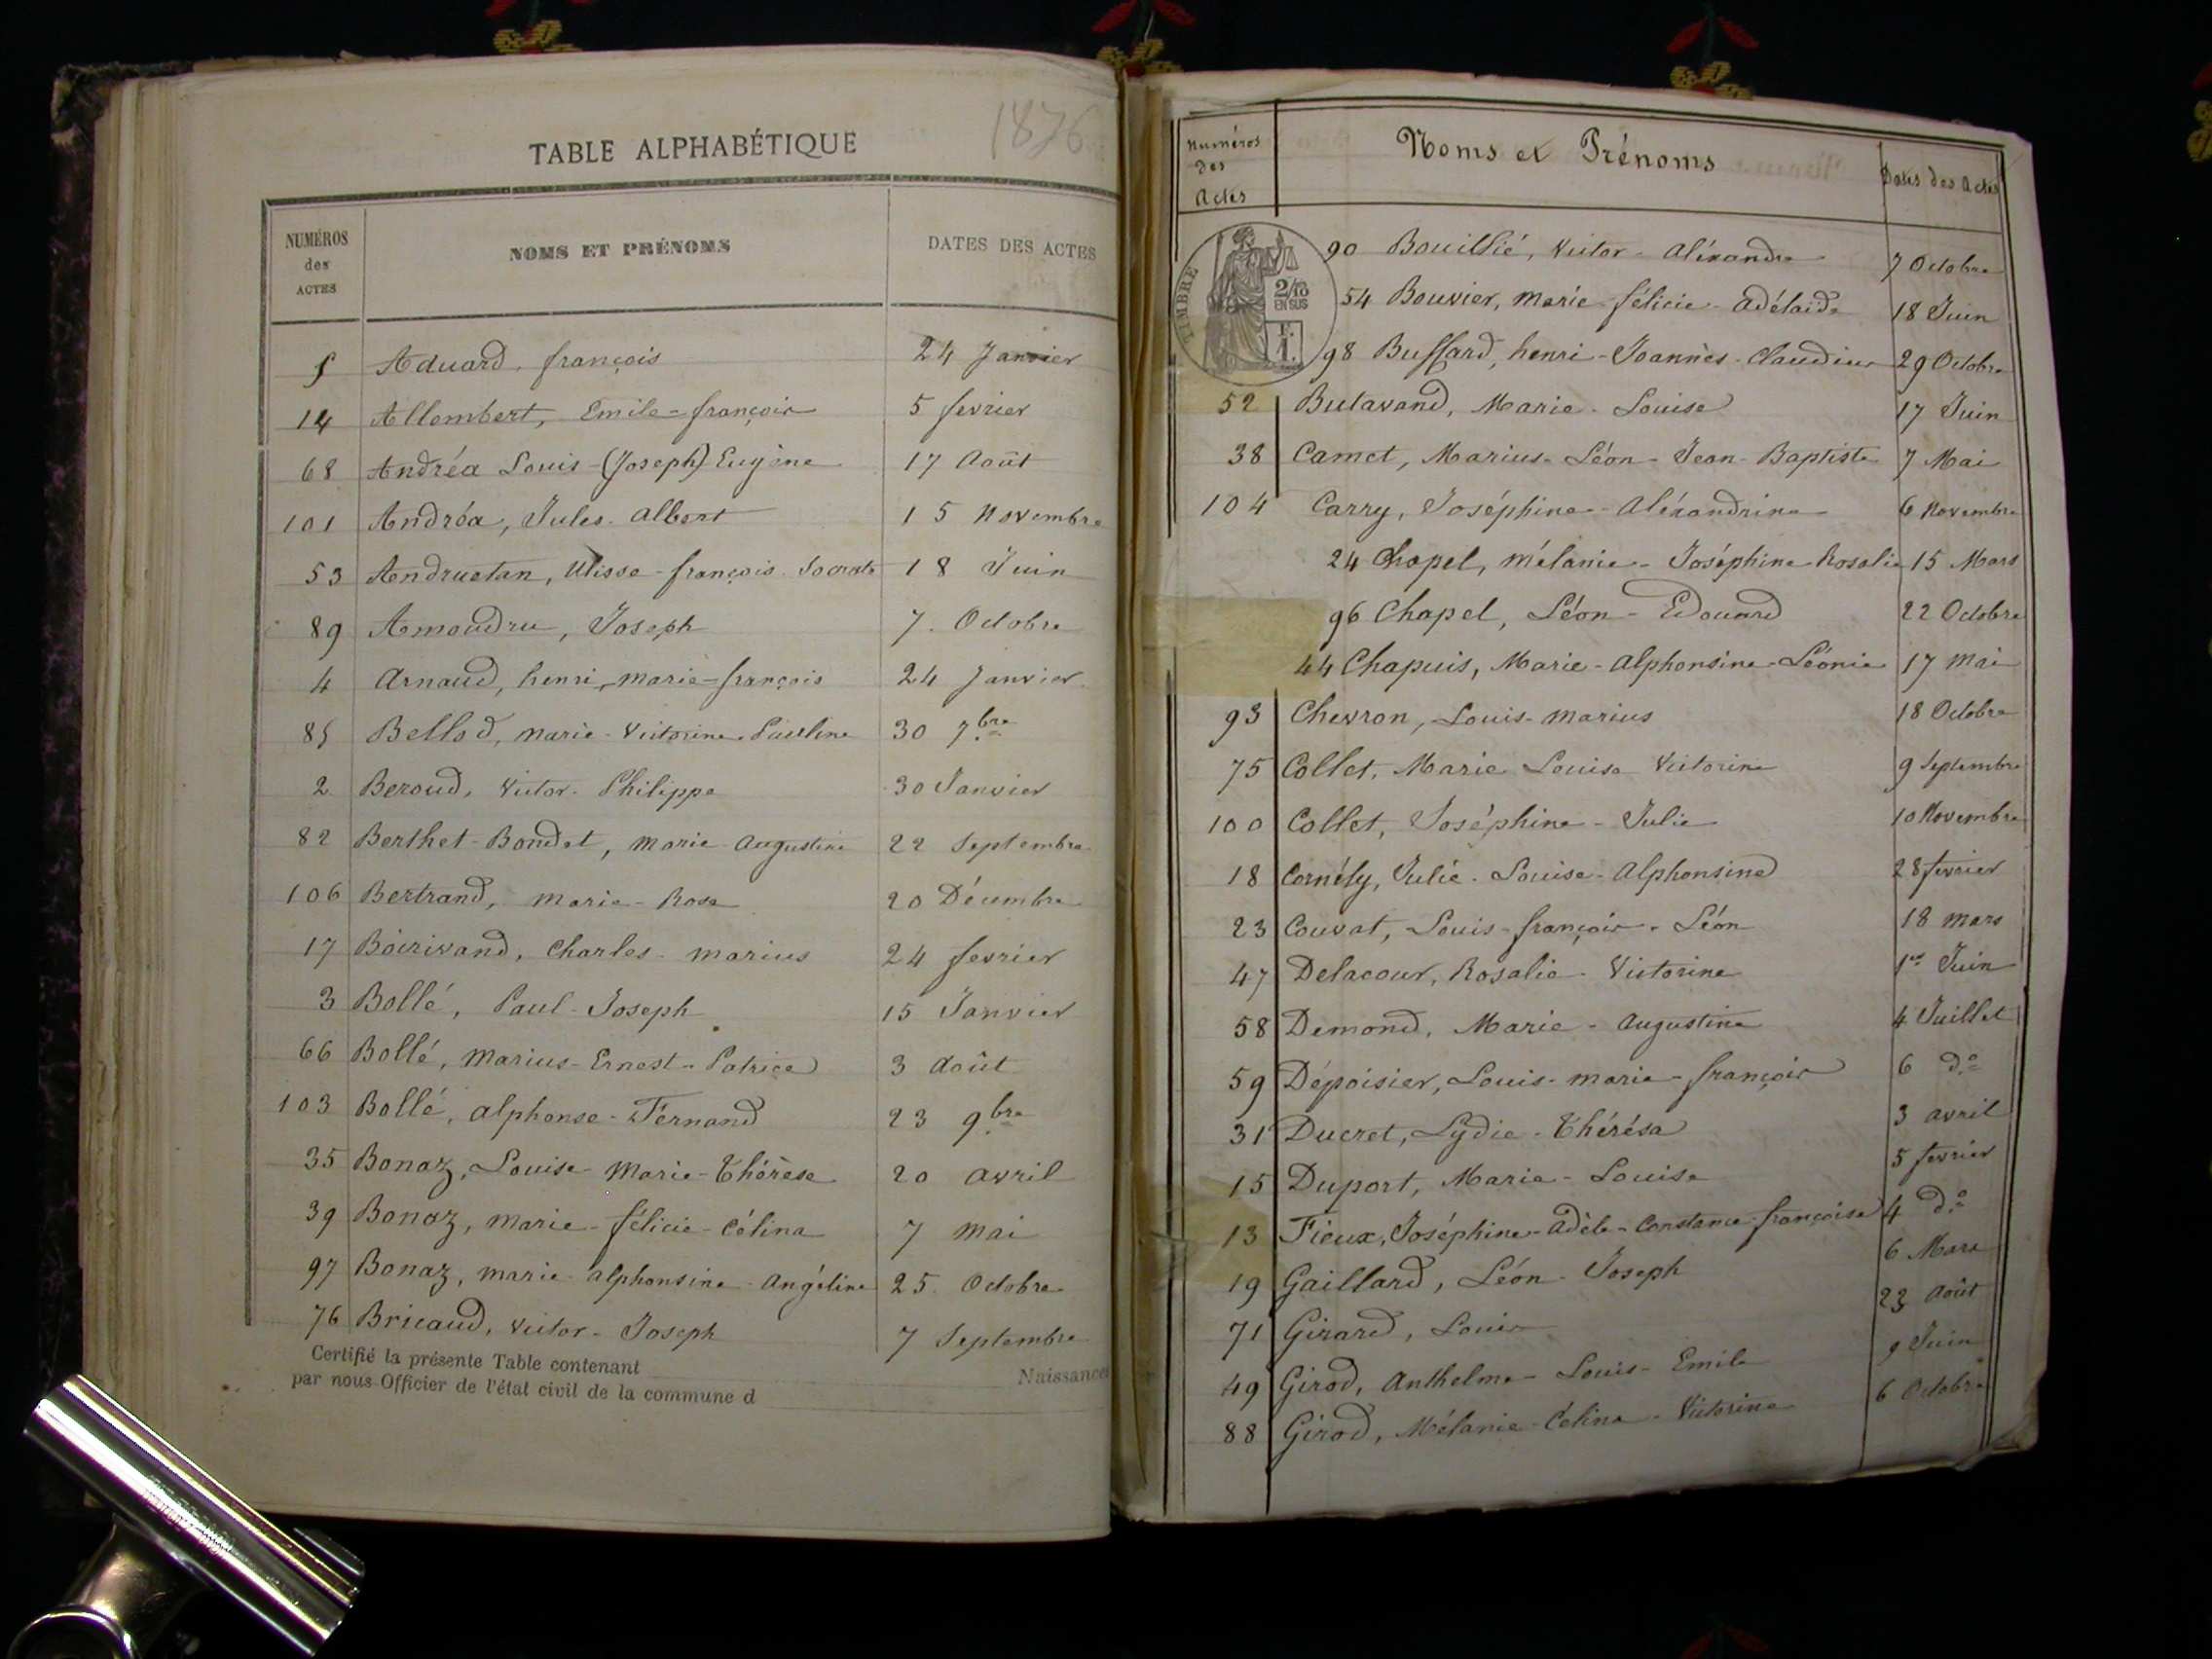 1876
TABLE ALPHABÉTIQUE
NUMÉROS
des
ACTES
NOMS ET PRÉNOMS
DATES DES ACTES
5 Aduard, françois 24 Janvier
14 Allombert, Emile-françois 5 fevrier
68 Andréa Louis-(Joseph) Eugène 17 Août
101 Andréa, Jules-Albert 15 Novembre
53 Andruetan, Ulisse-françois-Socrate 18 Juin
89 Amoudru, Joseph 7 Octobre
4 Arnaud, henri-marie-françois 24 Janvier
85 Bellod, Marie-Victorine-Pauline 30 7bre
2 Beroud, Victor-Philippe 30 Janvier
82 Berthet-Bondet, Marie-Augustine 22 Septembre
106 Bertrand, Marie-Rose 20 Décembre
17 Boirivand, Charles-marius 24 fevrier
3 Bollé, Paul-Joseph 15 Janvier
66 Bollé, Marius-Ernest-Patrice 3 Août
103 Bollé, Alphonse-Fernand 23 9bre
35 Bonaz, Louise-Marie-Thérèse 20 Avril
39 Bonaz, Marie-félicie-Célina 7 Mai
97 Bonaz, Marie-Alphonsine-Angéline 25 Octobre
76 Bricaud, Victor-Joseph 7 Septembre
Certifié la présente Table contenant Naissances
par nous Officier de l'état civil de la commune d
Numéros
des
Actes
Noms et Prénoms
Dates des Actes
TIMBRE
2/10
EN SUS
F.
1.
90 Bouillié, Victor-Aléxandre 7 Octobre
54 Bouvier, Marie-félicie-Adélaide 18 Juin
98 Buffard, henri-Joannès-Claudius 29 Octobre
52 Butavand, Marie-Louise 17 Juin
38 Camet, Marius-Léon-Jean-Baptiste 7 Mai
104 Carry, Joséphine-Aléxandrine 6 Novembre
24 Chapel, Mélanie-Joséphine Rosalie 15 Mars
96 Chapel, Léon-Edouard 22 Octobre
44 Chapuis, Marie-Alphonsine-Léonie 17 Mai
93 Chevron, Louis-Marius 18 Octobre
75 Collet, Marie Louise Victorine 9 Septembre
100 Collet, Joséphine-Julie 10 Novembre
18 Cornély, Julie-Louise-Alphonsine 28 fevrier
23 Couvat, Louis-françois-Léon 18 Mars
47 Delacour, Rosalie-Victorine 1er Juin
58 Demond, Marie-Augustine 4 Juillet
59 Dépoisier, Louis-marie-françois 6 do
31 Ducret, Lydie-Thérésa 3 Avril
15 Duport, Marie-Louise 5 fevrier
13 Fieux, Joséphine-Adèle-Constance-françoise 4 do
19 Gaillard, Léon-Joseph 6 Mars
71 Girard, Louis 23 Août
49 Girod, Anthelme-Louis-Emile 9 Juin
88 Girod, Mélanie-Célina-Victorine 6 Octobre